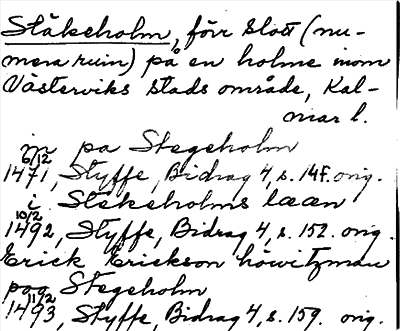 Stäkeholm, förr slott (nu-
mera ruin) på en holme inom
Västerviks stads område, Kal-
mar l.
in pa Stegeholm
6/12
1471, Styffe, Bidrag 4, s. 147. orig.
i Stekeholms læan
10/2
1492, Styffe, Bidrag 4, s. 152. orig.
Erick Erickson howitzman
paa Stegeholm
11/2
1493, Styffe, Bidrag 4, s. 159. orig.